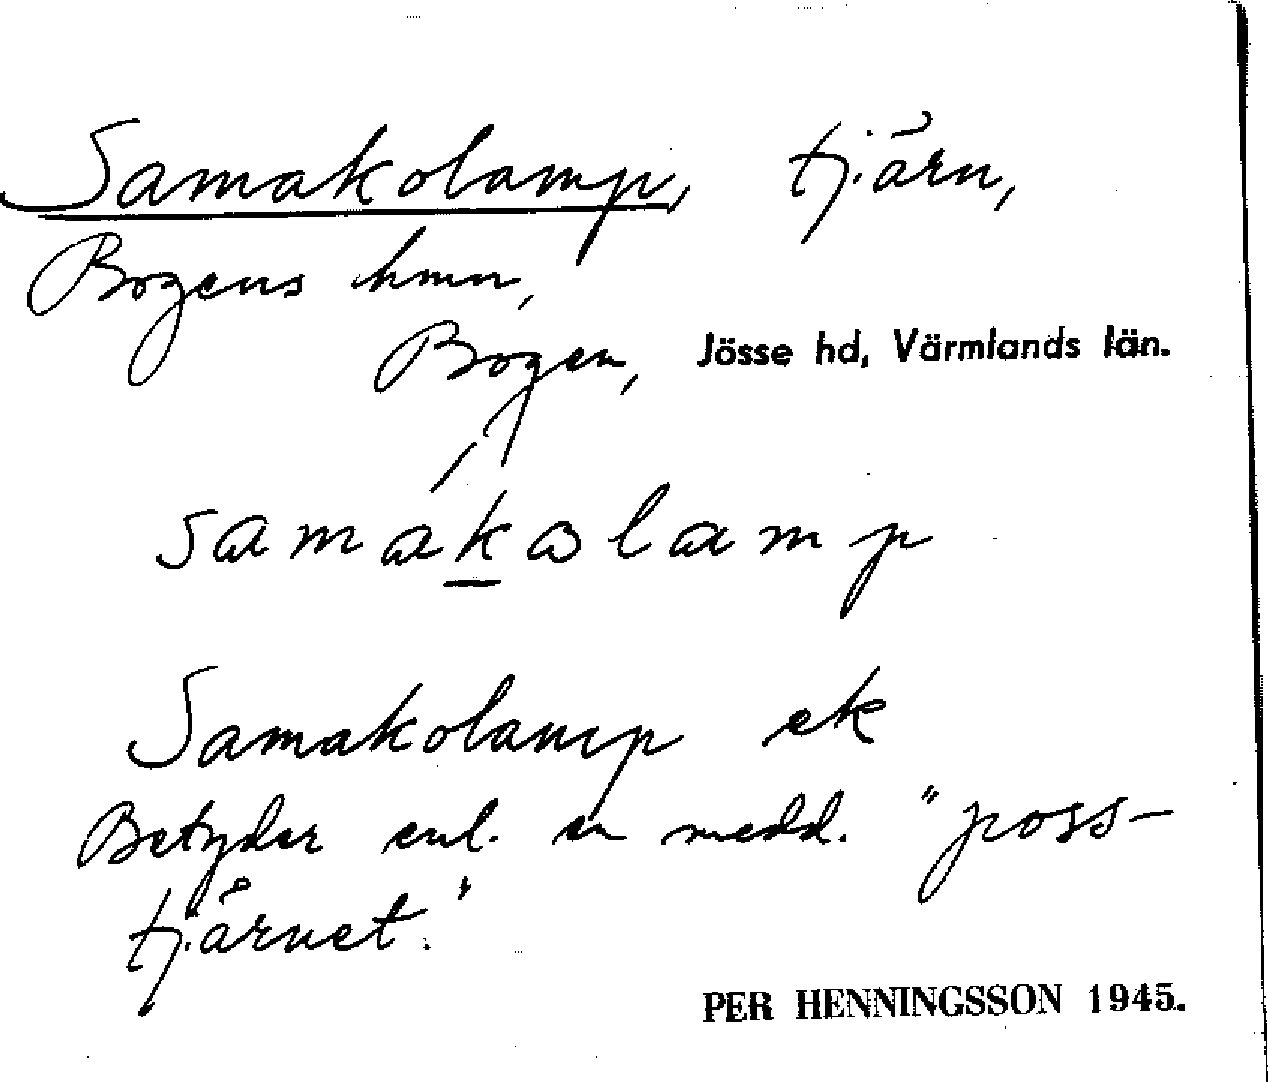 Samakolamp, tjärn,
Bogens hmn,
Bogen, Jösse hd, Värmlands län.
samakolamp
Samakolamp ek
Betyder enl. en medd. "poss-
tjärnet."
PER HENNINGSSON 1945.